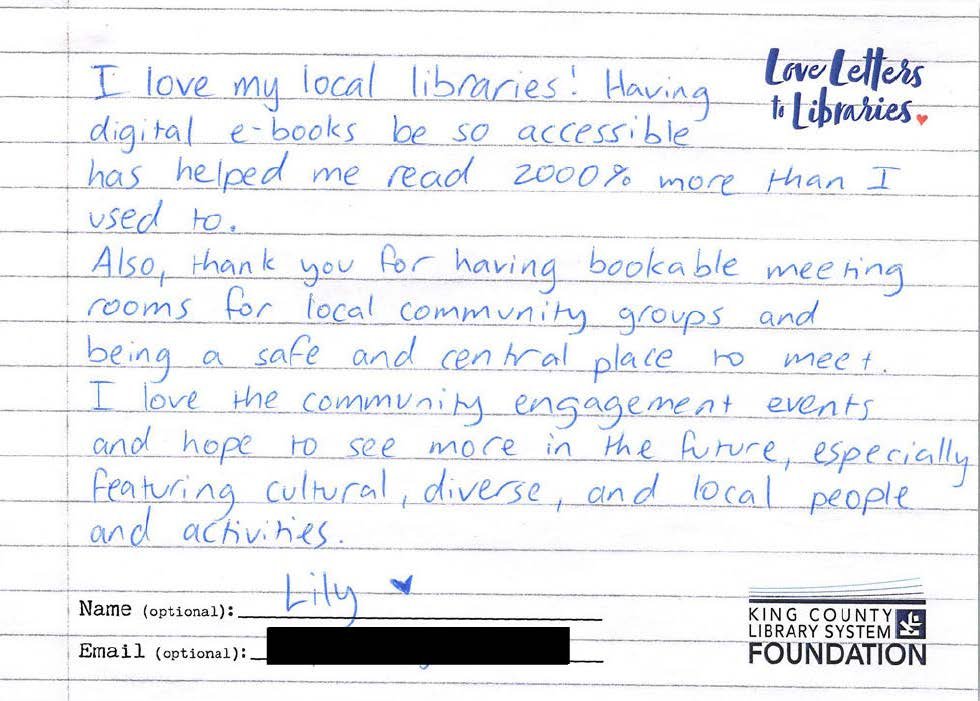 Love Letters
to Libraries
I love my local libraries! Having
digital e-books be so accessible
has helped me read 2000% more than I
used to.
Also, thank you for having bookable meeting
rooms for local community groups and
being a safe and central place to meet.
I love the community engagement events
and hope to see more in the future, especially
featuring cultural, diverse, and local people
and activities.
Name (optional): Lily
Email (optional):
KING COUNTY
LIBRARY SYSTEM
FOUNDATION